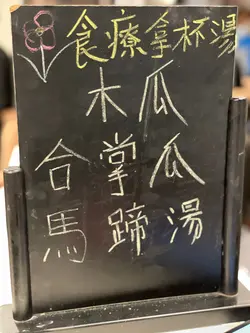 食療拿杯湯
木瓜
合掌瓜
馬蹄湯